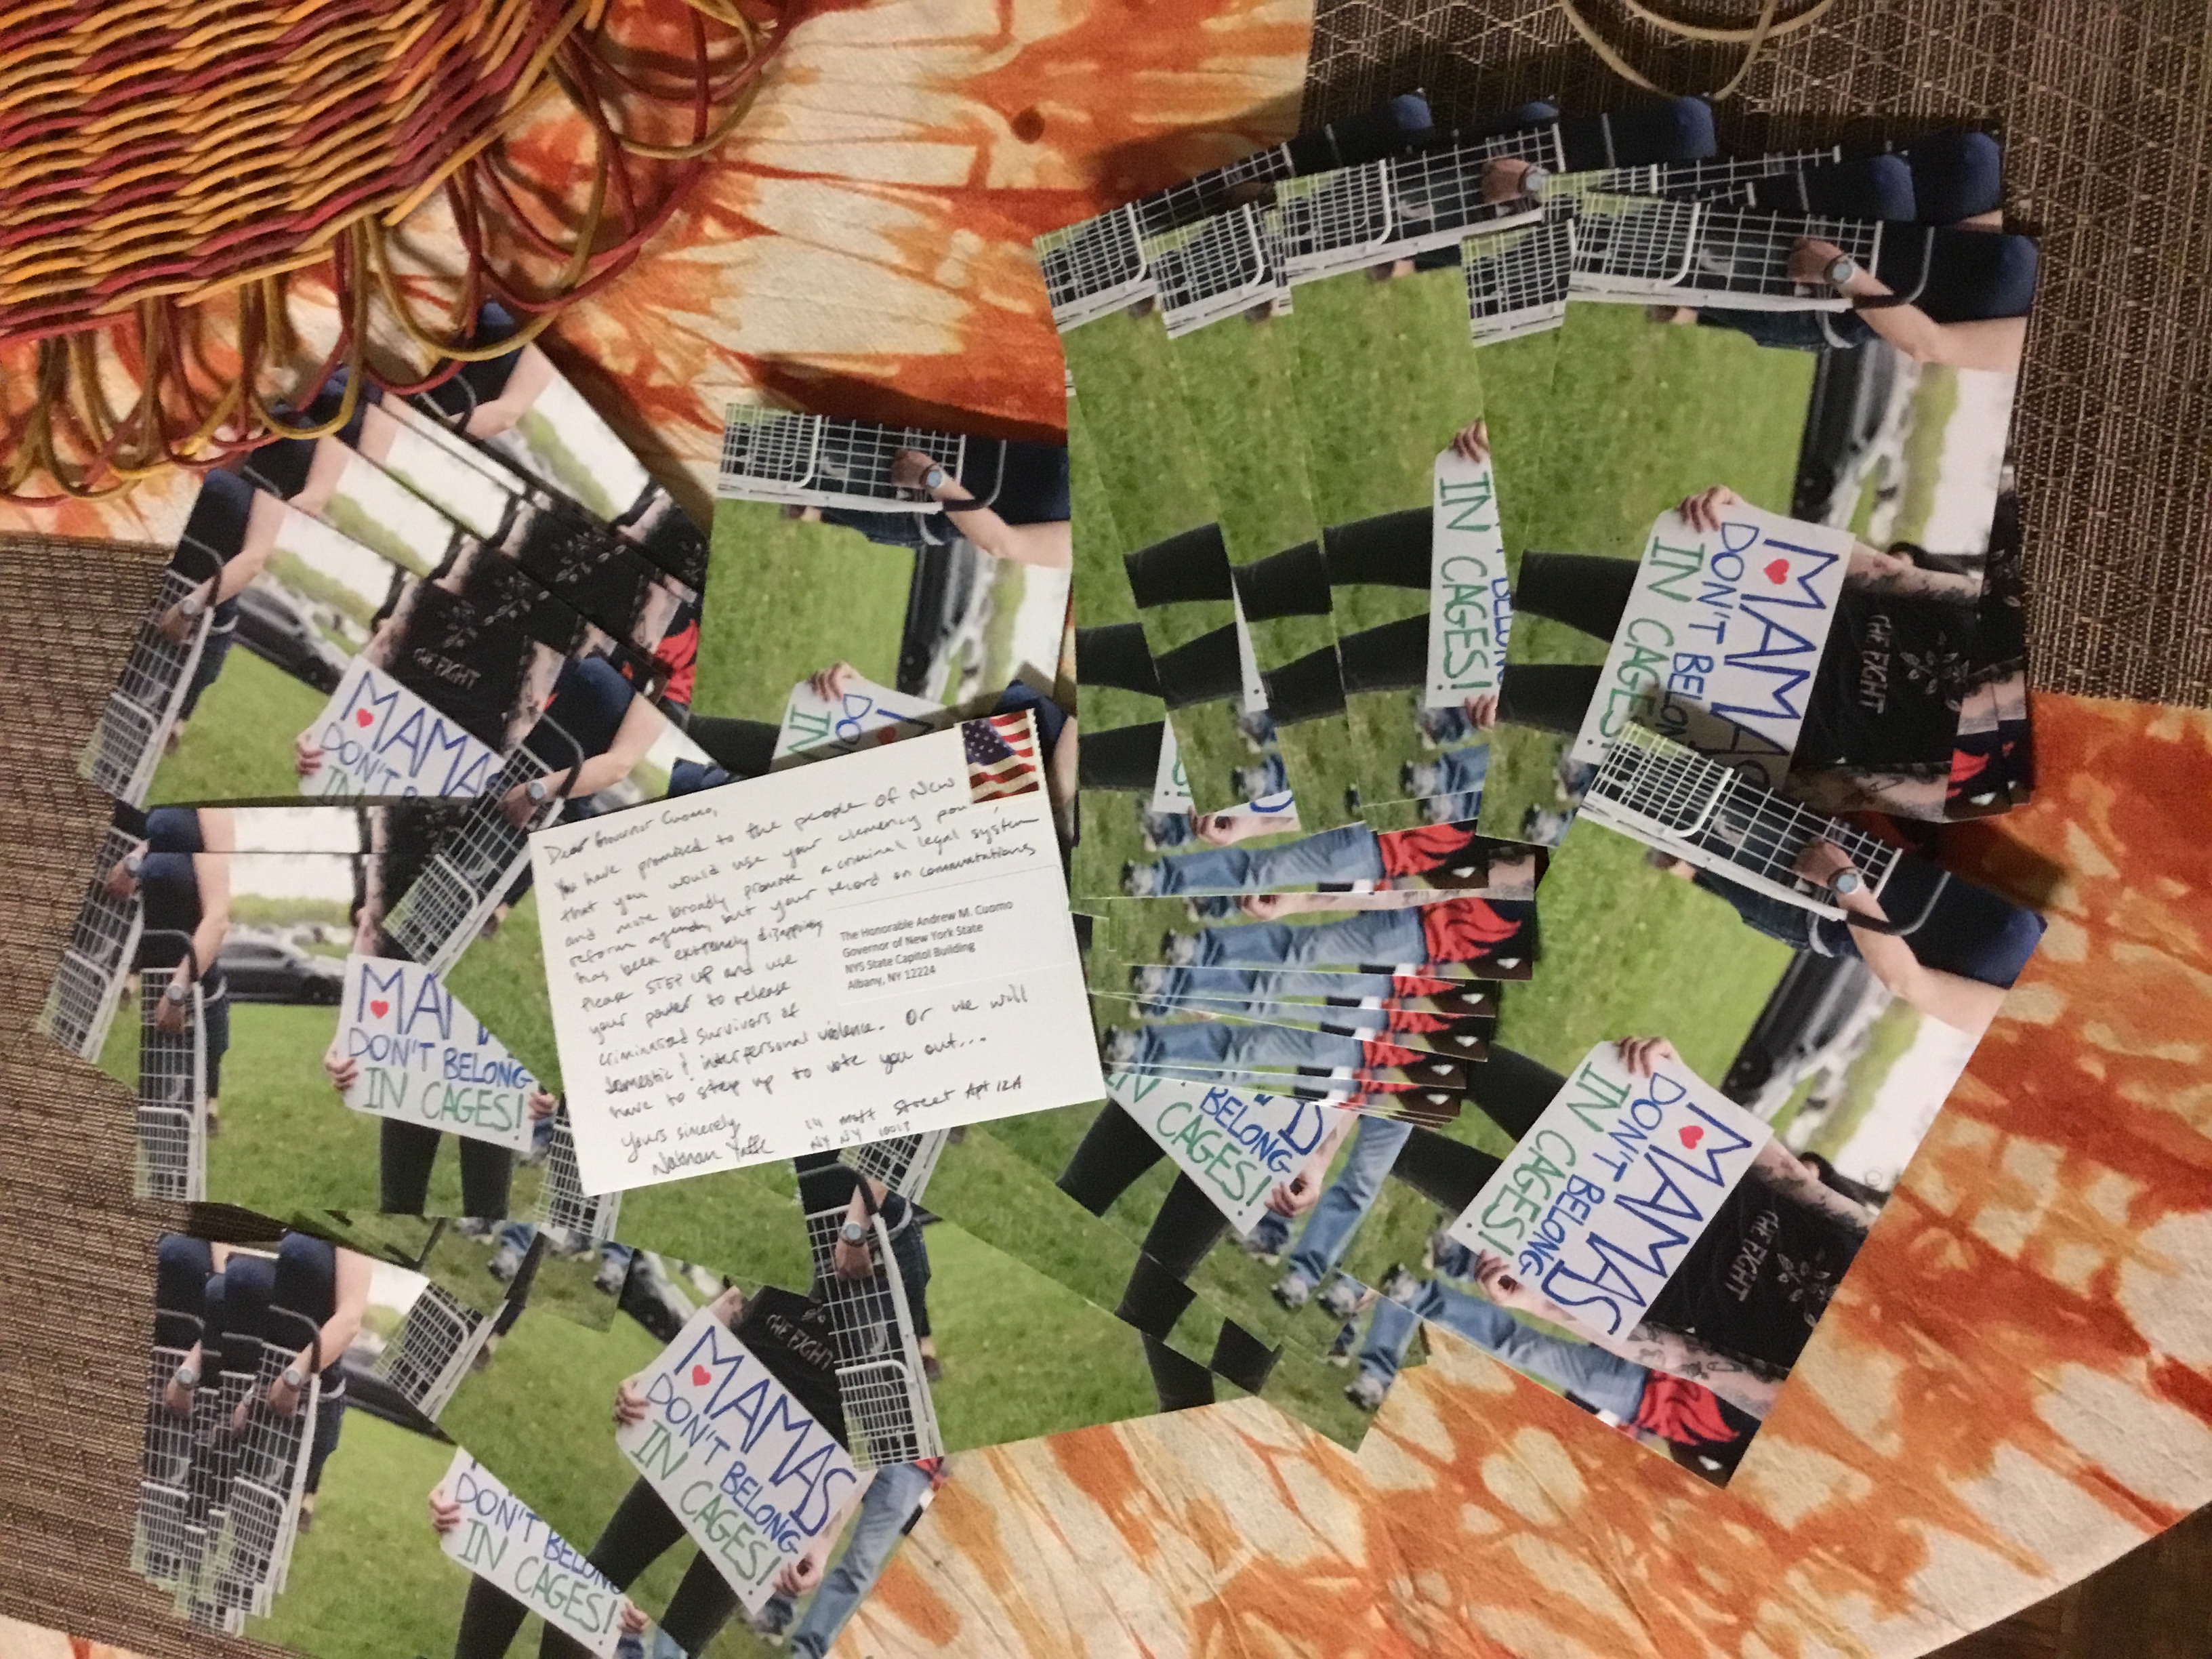 Dear Governor Cuomo,
You have promised to the people of New
that you would use your clemency
and more broadly promote a criminal legal system
reform agenda, but your record on commutations
has been extremely
Please STEP up and use
your power to release
criminalized survivors of
domestic & interpersonal violence. Or we will
have to step up to vote you out...
Yours sincerely
Nathan
Street Apt 12A
NY NY
The Honorable Andrew M. Cuomo
Governor of New York State
NYS State Capitol Building
Albany, NY 12224
MAMAS
DON'T
IN
THE FIGHT
MA
DON'T BELONG
IN CAGES!
DON'T BELONG
IN CAGES!
MAMAS
DON'T BELONG
IN CAGES!
THE FIGHT
DO
IN
BELONG
IN CAGES!
BELONG
IN CAGES!
MAMAS
DON'T BELONG
IN CAGES!
THE FIGHT
MAMAS
DON'T BELONG
IN CAGES!
THE FIGHT